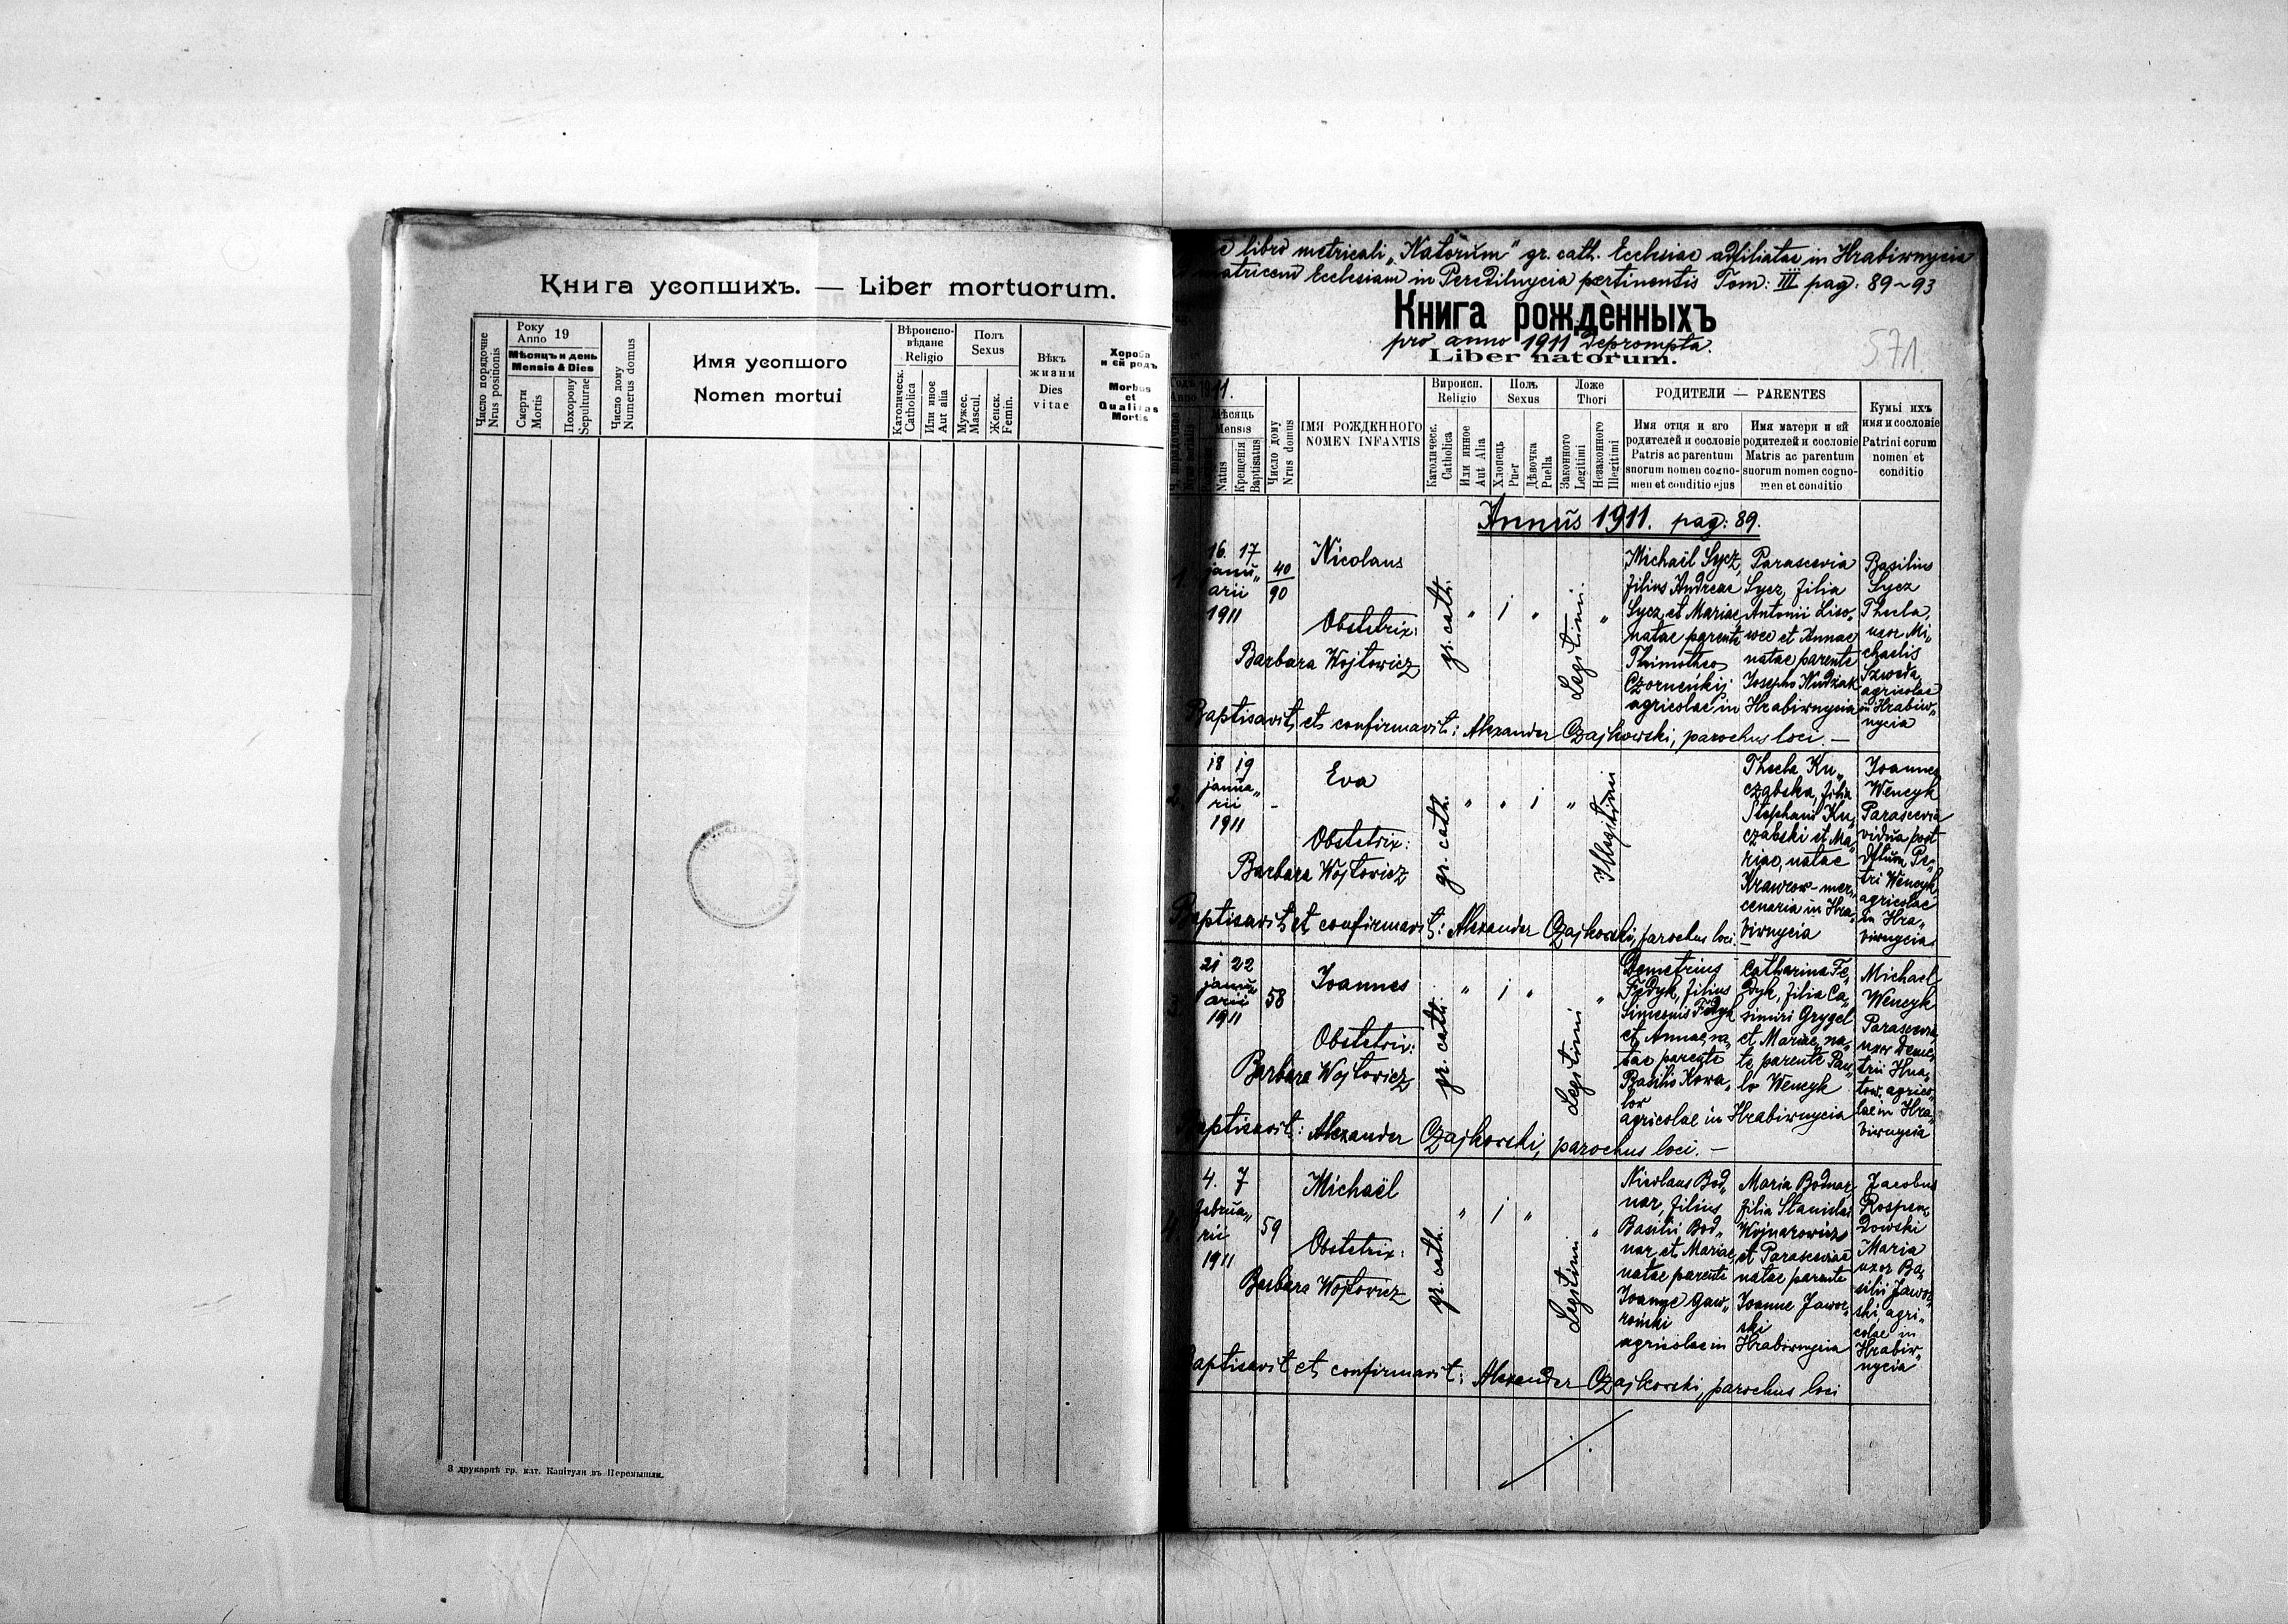 Книга усопшихъ. — Liber mortuorum.
Число порядочне
Nrus positionis
Року
Anno 19
Мѣсяцъ и день
Mensis & Dies
Смерти
Mortis
Похорону
Sepulturae
Число дому
Numerus domus
Имя усопшого
Nomen mortui
Вѣроиспо-
вѣдане
Religio
Католическ.
Catholica
Или иное
Aut alia
Полъ
Sexus
Мужес.
Mascul.
Женск.
Femin.
Вѣкъ
жизни
Dies
vitae
Хороба
и єй родъ
Morbus
et
Qualitas
Mortis
З друкарнѣ гр. кат. Капітули въ Перемышли.
libro metricali „Natorum" gr. cath. Ecclesiae adfiliatae in Hrabiwnycia
matricem Ecclesiam in Peredilnycia pertinentis Tom: III pag: 89~93
Книга рожденныхъ
pro anno 1911 deprompta.
Liber natorum.
571.
Годъ
Anno 1911.
Мѣсяць
Mensis
Natus
Крещенія
Baptisatus
Число дому
Nrus domus
ІМЯ РОЖДЕННОГО
NOMEN INFANTIS
Вироисп.
Religio
Католическ.
Catholica
Или инное
Aut Alia
Полъ
Sexus
Хлопець
Puer
Дѣвочка
Puella
Ложе
Thori
Законного
Legitimi
Незаконного
Illegitimi
РОДИТЕЛИ — PARENTES
Имя отця и его
родителей и сословіе
Patris ac parentum
suorum nomen cogno-
men et conditio ejus
Имя матери и єй
родителей и сословіе
Matris ac parentum
suorum nomen cogno-
men et conditio
Кумы ихъ
имя и сословіе
Patrini eorum
nomen et
conditio
Annus 1911. pag: 89.
1.
16. 17
janu„
arii
1911
40
90
Nicolaus
Obstetrix:
Barbara Wojtowicz
gr. cath.
„ 1 „
Legitimi
„
Michaël Sycz,
filius Andreae
Sycz, et Mariae
natae parente
Thimotheo
Czorneńkij
agricolae in
Parascevia
Sycz, filia
Antonii Liso„
wec et Annae
natae parente
Josepho Nudżak
Hrabiwnycia
Basilius
Sycz
Thecla,
uxor Mi„
chaelis
Szweda,
agricolae
in Hrabiw„
nycia
Baptisavit et confirmavit: Alexander Czajkowski, parochus loci. —
18 19
janua„
rii
1911
-
Eva
Obstetrix:
Barbara Wojtowicz
gr. cath.
„ „ 1 „
Illegitimi
Thecla Ku„
czabska, filia
Stephani Ku„
czabski et Ma„
riae, natae
Krawcow mer„
cenaria in Hra„
biwnycia
Joannes
Wencyk
Parascevia
vidua post
dftum Pe„
tri Wencyk,
agricolae
in Hra„
biwnycia
Baptisavit et confirmavit: Alexander Czajkowski, parochus loci
21 22
janu„
arii
1911
58
Joannes
Obstetrix:
Barbara Wojtowicz
gr. cath.
„ 1 „
Legitimi
„
Demetrius
Fedyk, filius
Simeonis Fedyk
et Annae, na„
tae parente
Basilio Kowa„
low
agricolae in Hrabiwnycia
Catharina Fe„
dyk, filia Ca„
simiri Grygel
et Mariae, na„
te parente Paw„
lo Wencyk
Michael
Wencyk
Parascevia
uxor Deme„
trii Hna„
tow, agrico„
lae in Hra„
biwnycia
Baptisavit: Alexander Czajkowski, parochus loci. —
4.
4. 7
Februa„
rii
1911
59
Michaël
Obstetrix:
Barbara Wojtowicz
gr. cath.
„ 1 „
Legitimi
„
Nicolaus Bod„
nar, filius
Basilii Bod„
nar et Mariae,
natae parente
Joanne Gaw„
roński
agricolae in
Maria Bodnar,
filia Stanislai
Wojnarowicz
et Parasceviae
natae parente
Joanne Jawor„
ski
Hrabiwnycia
Jacobus
Rospen„
dowski
Maria
uxor Ba„
silii Jawor„
ski, agri„
colae in
Hrabiw„
nycia
Baptisavit et confirmavit: Alexander Czajkowski, parochus loci